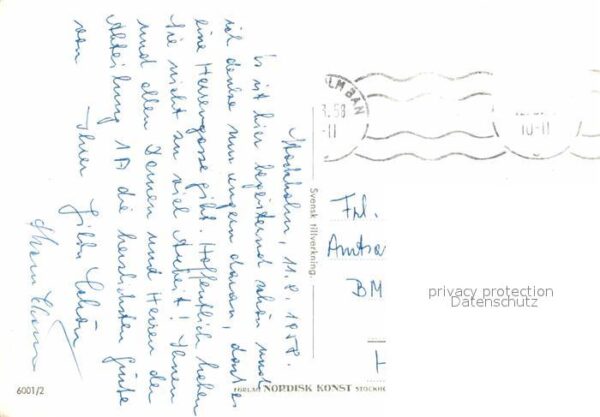 Stockholm, 11.8.1958.
Es ist hier begeisternd schön und
ich denke nun ungern daran, dass es
eine Herrengasse gibt. Hoffentlich haben
Sie nicht zu viel Arbeit! Ihnen
und allen Damen und Herren der
Abteilung 1A die herzlichsten Grüße
von Ihrer Hilde
Svensk tillverkning.
LM BAN
.58
-11
10-11
Frl.
Amtsa
BM
privacy protection
Datenschutz
6001/2
FÖRLAG NORDISK KONST STOCKHO